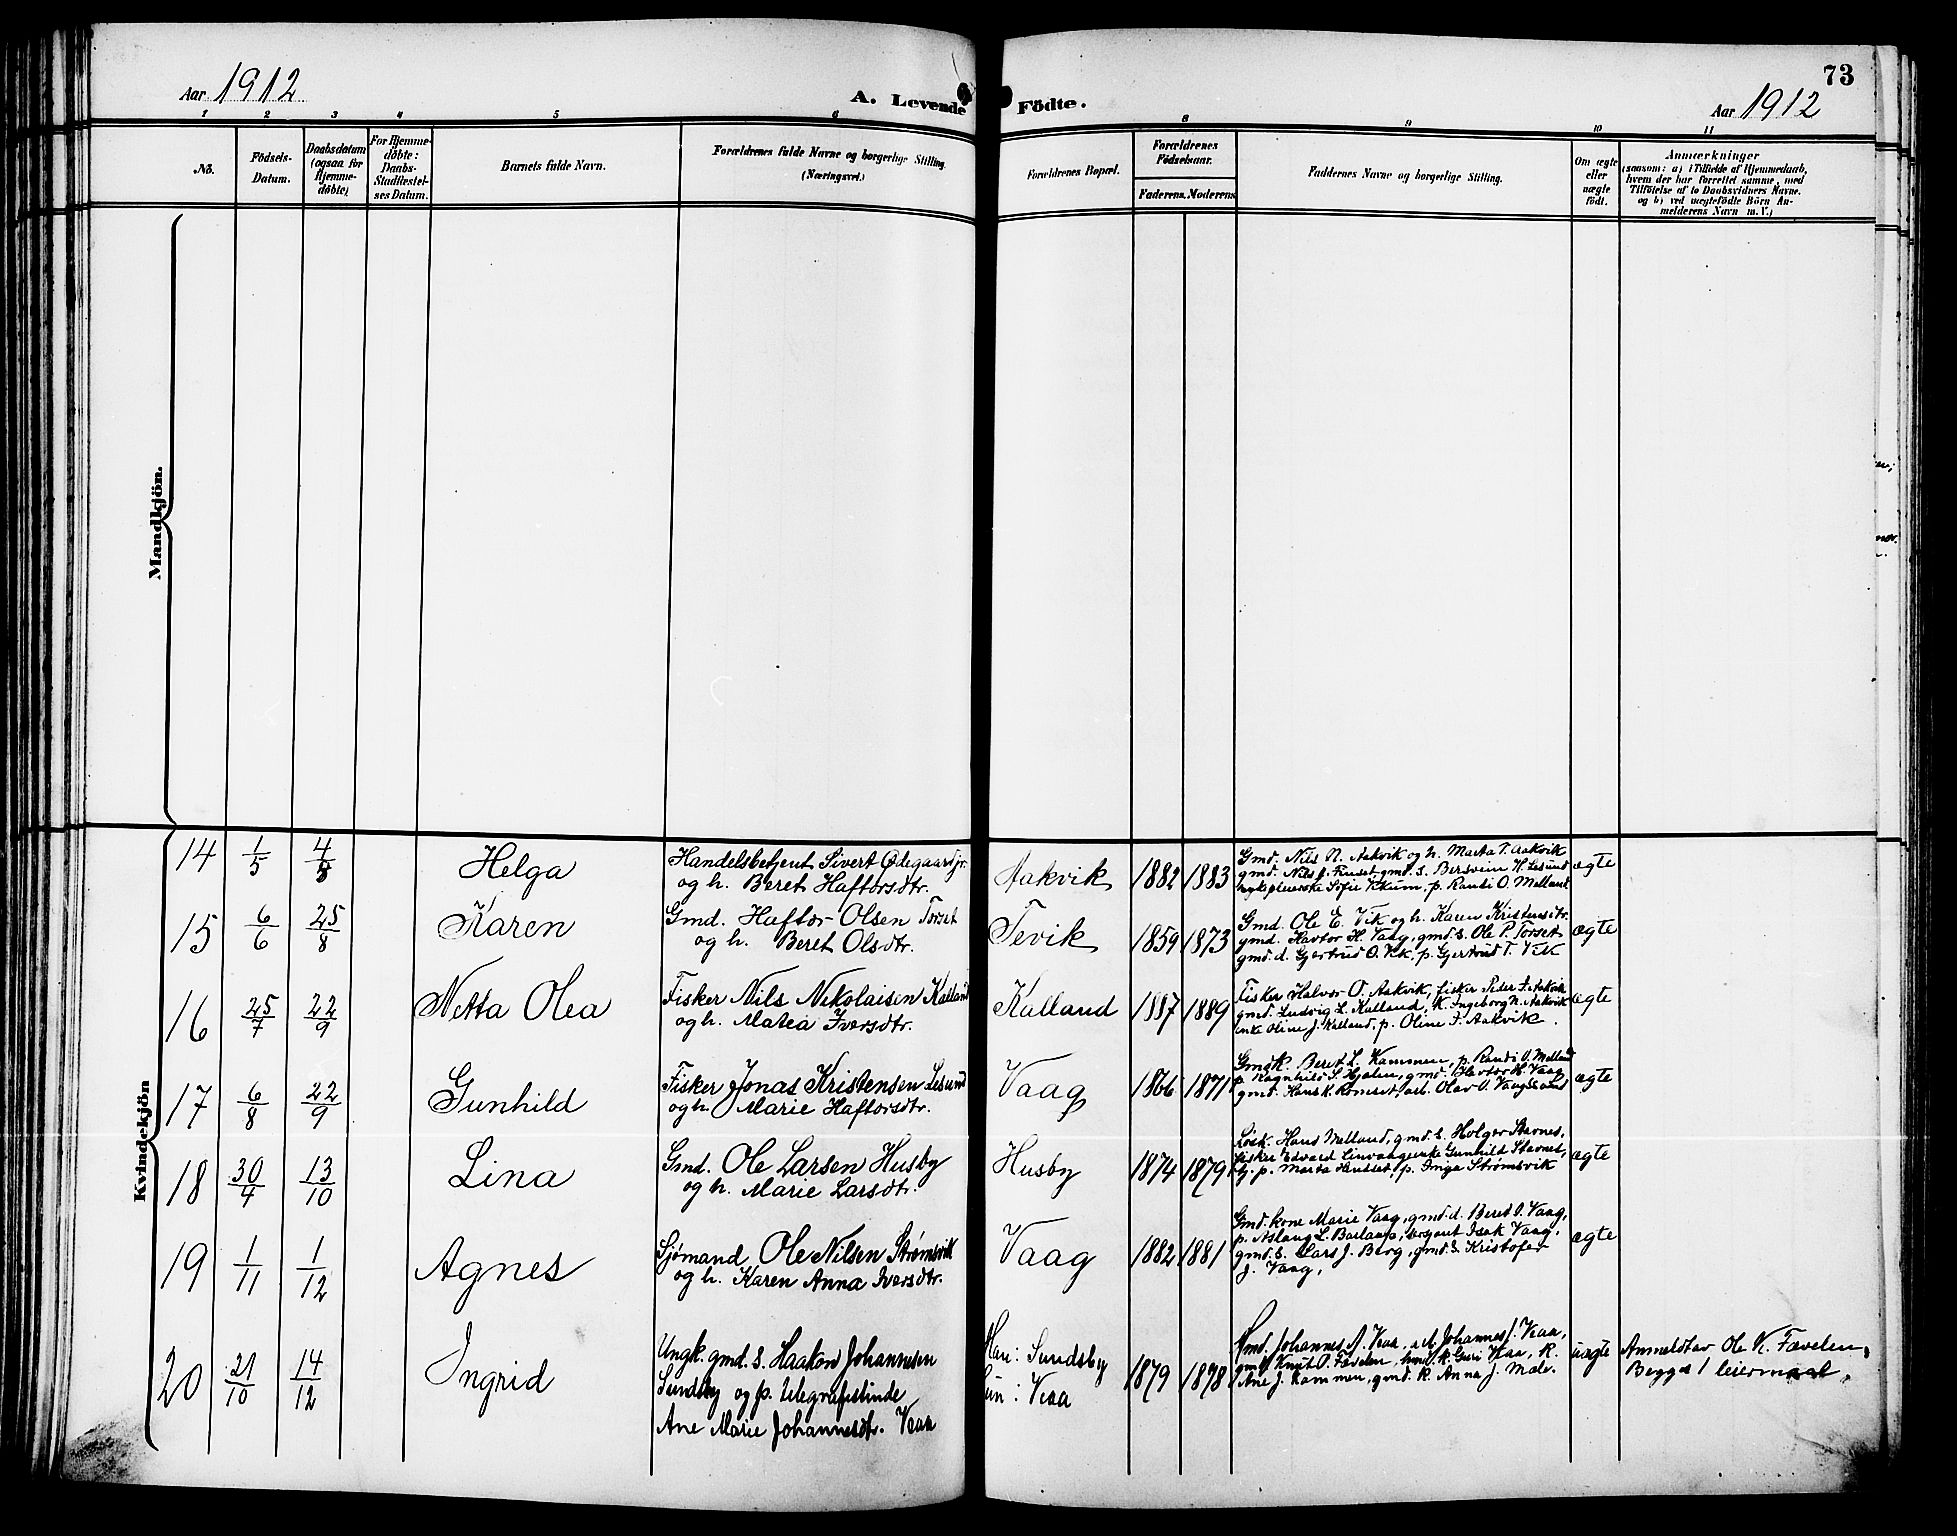 73
Aar 1912
A. Levende Födte.
Aar 1912
1 2 3 4 5 6 8 9 10 11
No.
Födsels-
Datum.
Daabsdatum
(ogsaa for
Hjemme-
döbte)
For Hjemme-
döbte:
Daabs-
Stadfæstel-
ses Datum.
Barnets fulde Navn.
Forældrenes fulde Navne og borgerlige Stilling.
(Næringsvei.)
Forældrenes Bopæl.
Forældrenes
Födselsaar.
Faderens. Moderens
Faddernes Navne og borgerlige Stilling.
Om ægte
eller
uægte
födt.
Anmærkninger
(saasom: a) i Tilfælde af Hjemmedaab,
hvem der har forrettet samme, med
Tilföielse af to Daabsvidners Navne.
og b) ved uægtefödte Börn An-
melderens Navn m. V.)
Mandkjön.
Kvindekjön
14 1/5 4/8 Helga
Handelsbetjent Sivert Ødegaard jr.
og h. Beret Haftorsdtr.
Aakvik 1882 1883
Gmd. Nils N. Aakvik og h. Marta T. Aakvik
gmd. Nils J. gmd. s. Bersvein H. Lesund
sykepleierske Sofie p. Randi O. Melland
ægte
15 6/6 25/8 Karen
Gmd. Haftor Olsen Torset
og h. Beret Olsdtr.
Tevik 1859 1873
Gmd. Ole E. Vik og h. Karen Kristensdtr.
gmd. Havtor H. Vaag, gmd. s. Ole P. Torset
gmd. d. Gjertrud O. Vik, p. Gjertrud T. Vik
ægte
16 25/7 22/9 Netta Olea
Fisker Nils Nikolaisen Kalland
og h. Matea Iversdtr.
Kalland 1887 1889
Fisker Halvor O. Aakvik, fisker Peder Fr. Aakvik
gmd. Ludvig L. Kalland, K. Ingeborg N. Aakvik
enke Oline J. Kalland, p. Oline F. Aakvik.
ægte
17 6/8 22/9 Gunhild
Fisker Jonas Kristensen Lesund
og h. Marie Haftorsdtr.
Vaag 1866 1871
Gmdk. Beret L. Kammen, p. Randi O. Melland
p. Ragnhild S. Hjelen, gmd. Havtor H. Vaag
gmd. Hans K. Romset, arb. Olav O. Vaagsand
ægte
18 30/9 13/10 Lina
Gmd. Ole Larsen Husby
og h. Marie Larsdtr.
Husby 1874 1879
Løsk. Hans Melland, gmd. s. Holger Stavnes,
fisker Edvard enke Gunhild Stavnes,
tj. p. Marta p. Inga Strømsvik
ægte
19 1/11 1/12 Agnes
Sjømand Ole Nilsen Strømsvik
og h. Karen Anna Iversdtr.
Vaag 1882 1881
Gmd. kone Marie Vaag, gmd. d. Beret O. Vaag,
p. Aslaug L. sergeant Isak Vaag,
gmd. s. Lars J. Berg, gmd. s. Kristofer
J. Vaag,
ægte
20 21/10 14/12 Ingrid
Ungk. gmd. s. Haakon Johannesen
Sundsby og p. telegrafistinde
Ane Marie Johannesdtr. Vaa
Han: Sundsby
Hun: Vaa
1879 1878
Gmd. Johannes J. Vaa, Johannes J. Vaa,
gmd. Knut O. Fævelen, k. Guri Vaa, K.
Ane J. Kammen, gmd. k. Anna J. Male.
uægte
Anmeldtav Ole K. Fævelen,
Begges 1 leiermaal.